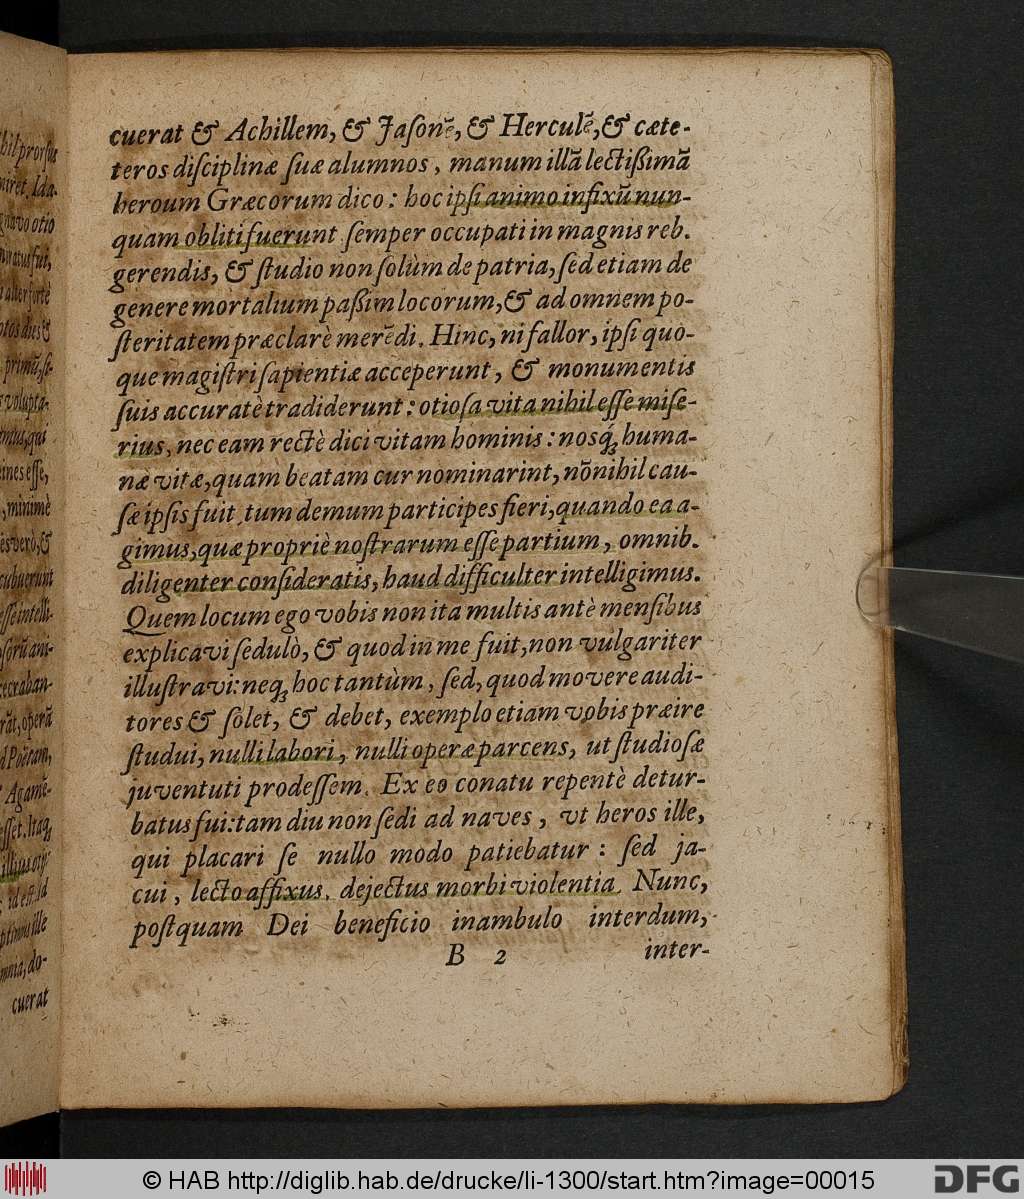 cuerat & Achillem, & Jaſonē, & Herculē, & cæte-
teros diſciplinæ ſuæ alumnos, manum illā lectißimā
heroum Græcorum dico: hoc ipſi animo infixū nun-
quam obliti fuerunt ſemper occupati in magnis reb.
gerendis, & ſtudio non ſolùm de patria, ſed etiam de
genere mortalium paßim locorum, & ad omnem po-
ſteritatem præclarè merēdi. Hinc, ni fallor, ipſi quo-
que magiſtri ſapientiæ acceperunt, & monumentis
ſuis accuratè tradiderunt: otioſa vita nihil eſſe miſe-
rius, nec eam rectè dici vitam hominis: nosq́; huma-
næ vitæ, quam beatam cur nominarint, nōnihil cau-
ſæ ipſis fuit tum demum participes fieri, quando ea a-
gimus, quæ propriè noſtrarum eſſe partium, omnib.
diligenter conſideratis, haud difficulter intelligimus.
Quem locum ego vobis non ita multis antè menſibus
explicavi ſedulò, & quod in me fuit, non vulgariter
illuſtravi: neq; hoc tantùm, ſed, quod movere audi-
tores & ſolet, & debet, exemplo etiam vobis præire
ſtudui, nulli labori, nulli operæ parcens, ut ſtudioſæ
juventuti prodeſſem. Ex eo conatu repentè detur-
batus fui: tam diu non ſedi ad naves, ut heros ille,
qui placari ſe nullo modo patiebatur: ſed ja-
cui, lecto affixus, dejectus morbi violentia. Nunc,
poſtquam Dei beneficio inambulo interdum,
B 2 inter-
cuerat
© HAB http://diglib.hab.de/drucke/li-1300/start.htm?image=00015
DFG